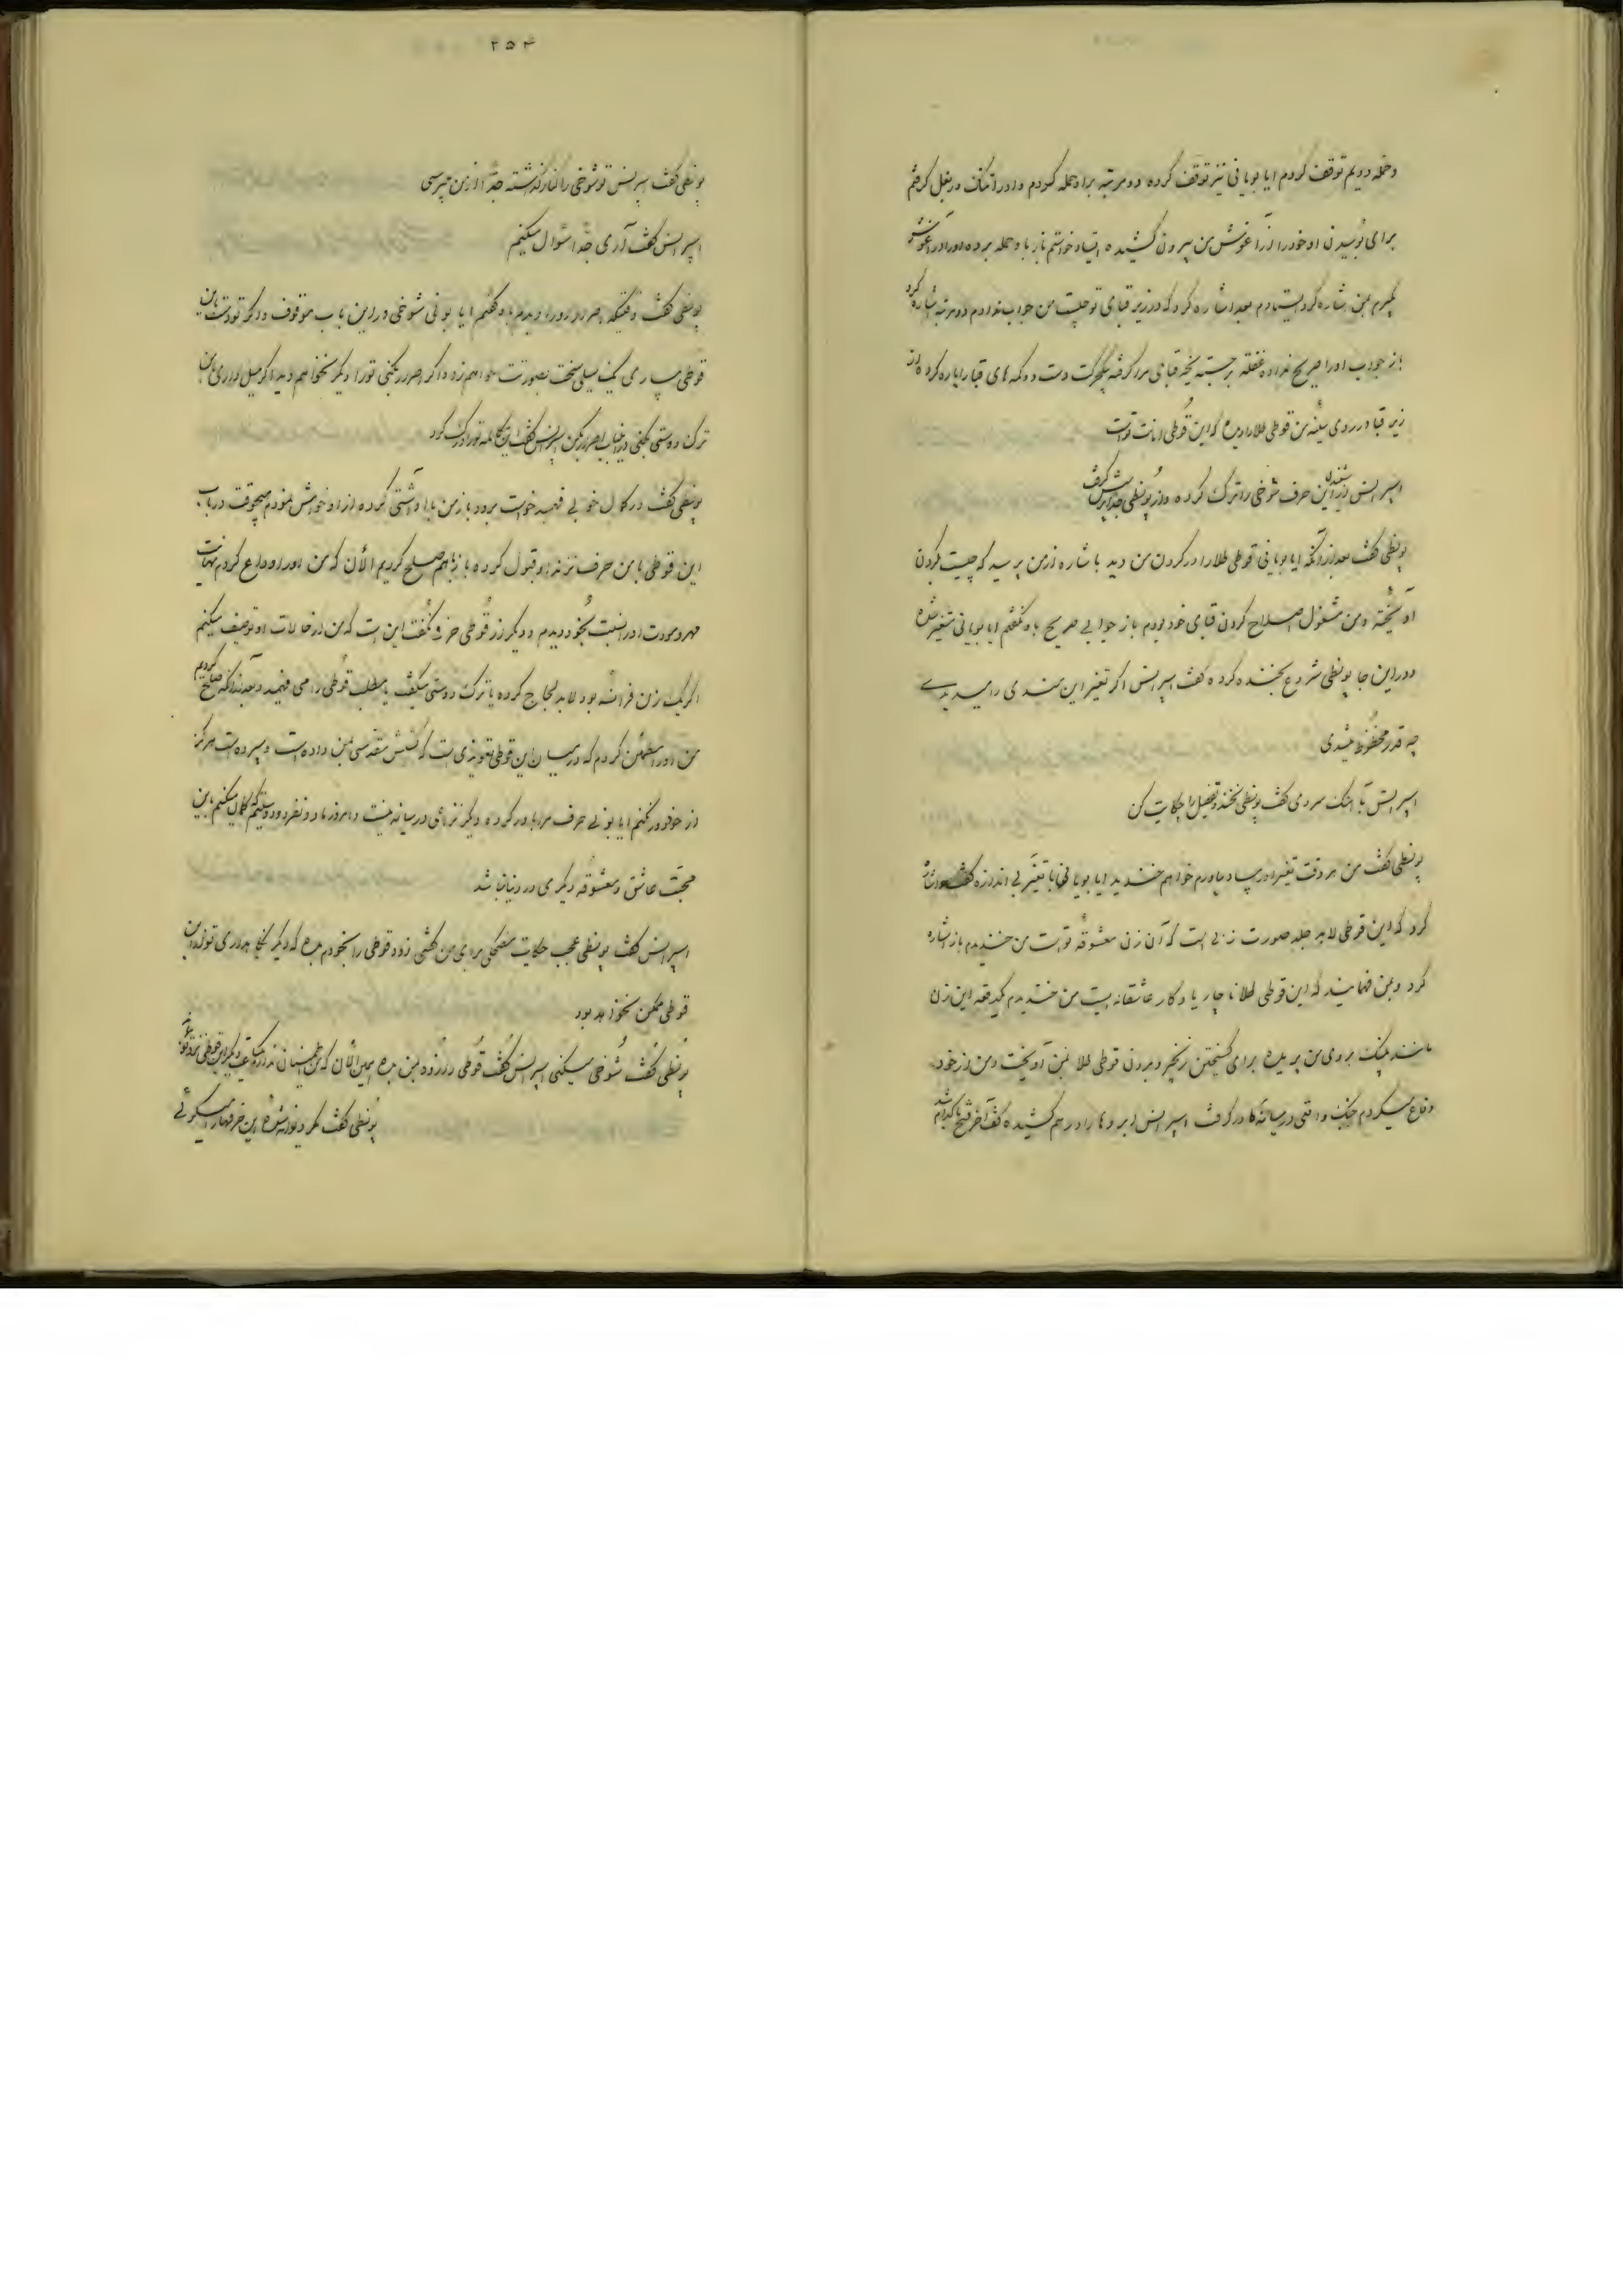 وحمله دویم توقف کردم ایا بوبانی نیز توقف کرده دو مرتبه برا و حمله کردم و او را تنک در بغل کرفتم
برای بوسیدن او خود را از آغوش من بیرون کشیده ایستاد خواستم باز با و حمله برده او را در آغوش
بکیرم بمن اشاره کرد ایستادم بعد اشاره کرد که در زیر قبای تو چیست من جواب ندادم دو مرتبه اشاره کرد
باز جواب او را صریح نداده غفلة برجسته یخه قبای مرا کرفته بیکحرکت دست دوکمه های قبا را پاره کرده از
زیر قبا در روی سینه من قوطی طلا را دیده که این قوطی امانت تو است
اسپرانس از شنیدن این حرف شوخی را ترک کرده و از پونطی جدا پرسش کرفت
پونطی کفت بعد از آنکه ایا بوبانی قوطی طلا را در کردن من دید با شاره از من پرسید که چیست بکردن
آویخته و من مشغول اصلاح کردن قبای خود بودم باز جوابی صریح باو نکفتم ایا بوبانی متغیر شده
و در این جا پونطی شروع بخنده کرده کفت اسپرانس اکر تغیر این هندی را میدیدے
چه قدر محظوظ میشدی
اسپرانس با آهنک سردی کفت پونطی نخند و تفصیل را حکایت کن
پونطی کفت من هر وقت تغیر او را بیاد بیاورم خواهم خندید ایا بوبانی با تغیر بی اندازه اشاره
کرد که این قوطی لابد جلد صورت زنی است که آن زن معشوقه تو است من خندیدم باز اشاره
کرد و بمن فهمانید که این قوطی طلا ناچار یادکار عاشقانه ایست من خندیدم یکدفعه این زن
مانند پلنک بروی من پریده برای کسیختن زنجیر و بردن قوطی طلا بمن آویخت و من از خود
دفاع میکردم جنک واقعی در میانه ما در کرفت اسپرانس ابروها را در هم کشیده کفت آخر فتح با کدام شد
۲۵۴
پونطی کفت اسپرانس تو شوخی را کنار کذاشته جدا از من میپرسی
اسپرانس کفت آری جدا سؤال میکنم
پونطی کفت وقتیکه اصرار او را دیدم باو کفتم ایا بوبانی شوخی در این باب موقوف و اکر تو دست باین
قوطی بیاری یک سیلی سخت بصورتت خواهم زد و اکر اصرار بکنی تو را دیکر نخواهم دید اکر میل داری با من
ترک دوستی بکنی در این باب اصرار بکن اسپرانس کفت این کلمه تو را درک کرد
پونطی کفت در کمال خوبی فهمید خواست برود باز من با او آشتی کرده از او خواهش نمودم هیچوقت در باب
این قوطی با من حرف نزند او قبول کرده باز با هم صلح کردیم الآن که من او را وداع کردم نهایت
مهر و مودت او را نسبت بخود دیدم و دیکر از قوطی حرفی نکفت این است که من از حالات او توصیف میکنم
اکر یک زن فرانسه بود لابد لجاج کرده یا ترک دوستی میکفت یا مطلب قوطی را می فهمید و بعد از آنکه صلح کردیم
من او را مطمئن کردم که در میان این قوطی تعویذی است که کشیش مقدسی بمن داده است و سپرده است هرکز
از خود دور نکنم ایا بوبانی حرف مرا باور کرده دیکر نزاعی در میانه نیست و امروز ما دو نفر دوستیم که کمان میکنم باین
محبت عاشق و معشوقه دیکری در دنیا نباشد
اسپرانس کفت پونطی عجب حکایت مضحکی برای من کفتی زود قوطی را بخودم بده که دیکر نکاهداری تو از این
قوطی ممکن نخواهد بود
پونطی کفت شوخی میکنی اسپرانس کفت قوطی را زود بمن بده همین الآن که من اطمینان ندارم یکساعت دیکر این قوطی نزد تو بماند
پونطی کفت مکر دیوانه شده این حرفها را میکوئی